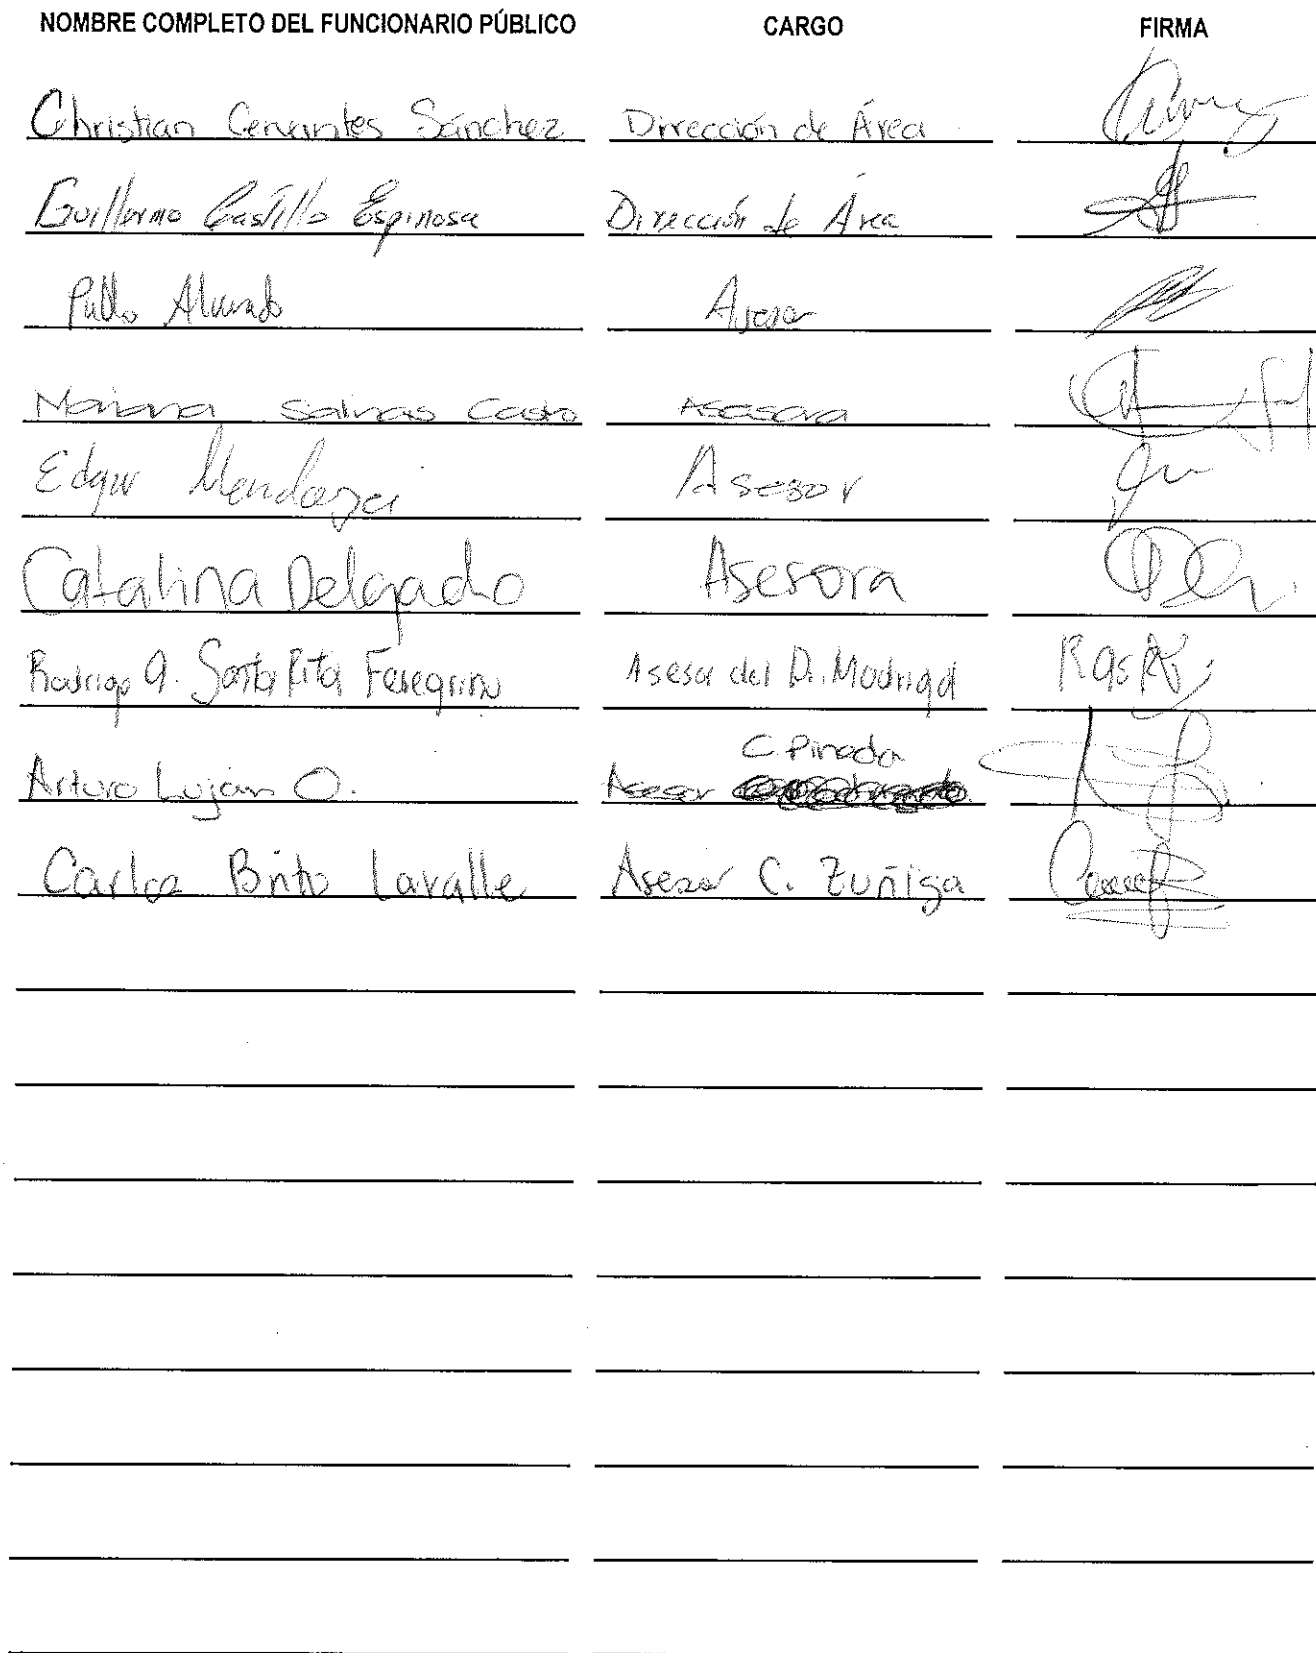 NOMBRE COMPLETO DEL FUNCIONARIO PÚBLICO CARGO FIRMA
Christian Cervantes Sánchez Dirección de Área
Guillermo Castillo Espinosa Dirección de Área
Pablo Alvarado Asesor
Mariana Salinas Castro Asesora
Edgar Mendoza Asesor
Catalina Delgado Asesora
Rodrigo A. Santa Rita Feregrino Asesor del D. Madrigal
C. Pineda
Arturo Luján O. Asesor
Carlos Brito Lavalle Asesor C. Zuñiga